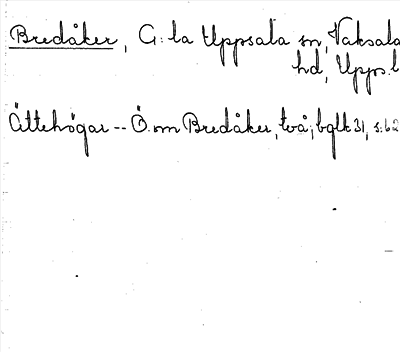 Bredåker, G:la Uppsala sn, Vaksala
hd, Upps.l
Ättehögar -- Ö. om Bredåker, två; bglk 31, s. 62